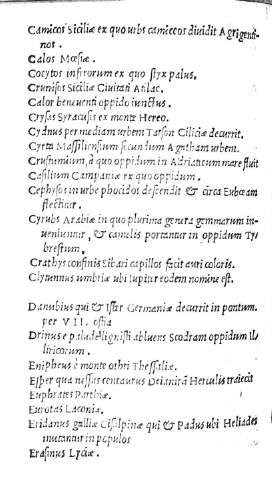 Camicos Siciliæ ex quo urbs camicos diuidit Agrigenti-
nos.
Calos Mœsiæ.
Cocytos inferorum ex quo styx palus.
Crunisos Siciliæ Ciuitati
Calor beneuenti oppido iunctus.
Crysas Syracusis ex monte Hereo.
Cydnus per mediam urbem Tarson Ciliciæ decurrit.
Cyrta Massiliensium secundum Agatham urbem.
Crustumium, à quo oppidum in Adriaticum mare fluit
Casilinum Campaniæ ex quo oppidum.
Cephysos in urbe phocidos descendit & circa Eubœam
flectitur.
Cyrubs Arabiæ in quo plurima genera gemmarum in-
ueniuntur, & camelis portantur in oppidum Ty
brestum.
Crathys confinis Sibari capillos facit auri coloris.
Clytunnus umbriæ ubi Iupiter eodem nomine est.
Danubius qui & Ister Germaniæ decurrit in pontum.
per VII. ostia
Drinus e abluens Scodram oppidum Il/
liricorum.
Enipheus è monte othri Thessaliæ.
Esper qua nessus centaurus Deianirã Herculis traiecit
Euphrates Parthiæ.
Eurotas Laconiæ.
Eridanus galliæ Cisalpinæ qui & Padus ubi Heliades
mutantur in populos
Erasinus Lyciæ.